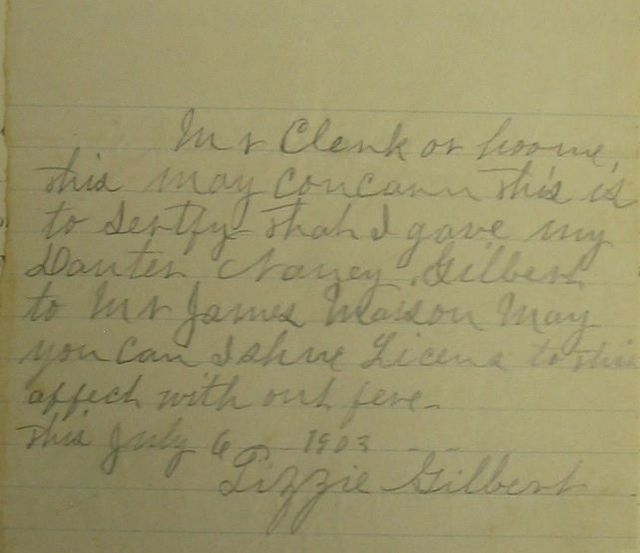 Mr Clerk or hoome,
this may concann this is
to sertfy that I gave my
Dauter Naney Gilbert
to Mr James Mason May
you can Ishue Licens to this
affect with out feve
this July 6 1903
Lizzie Gilbert